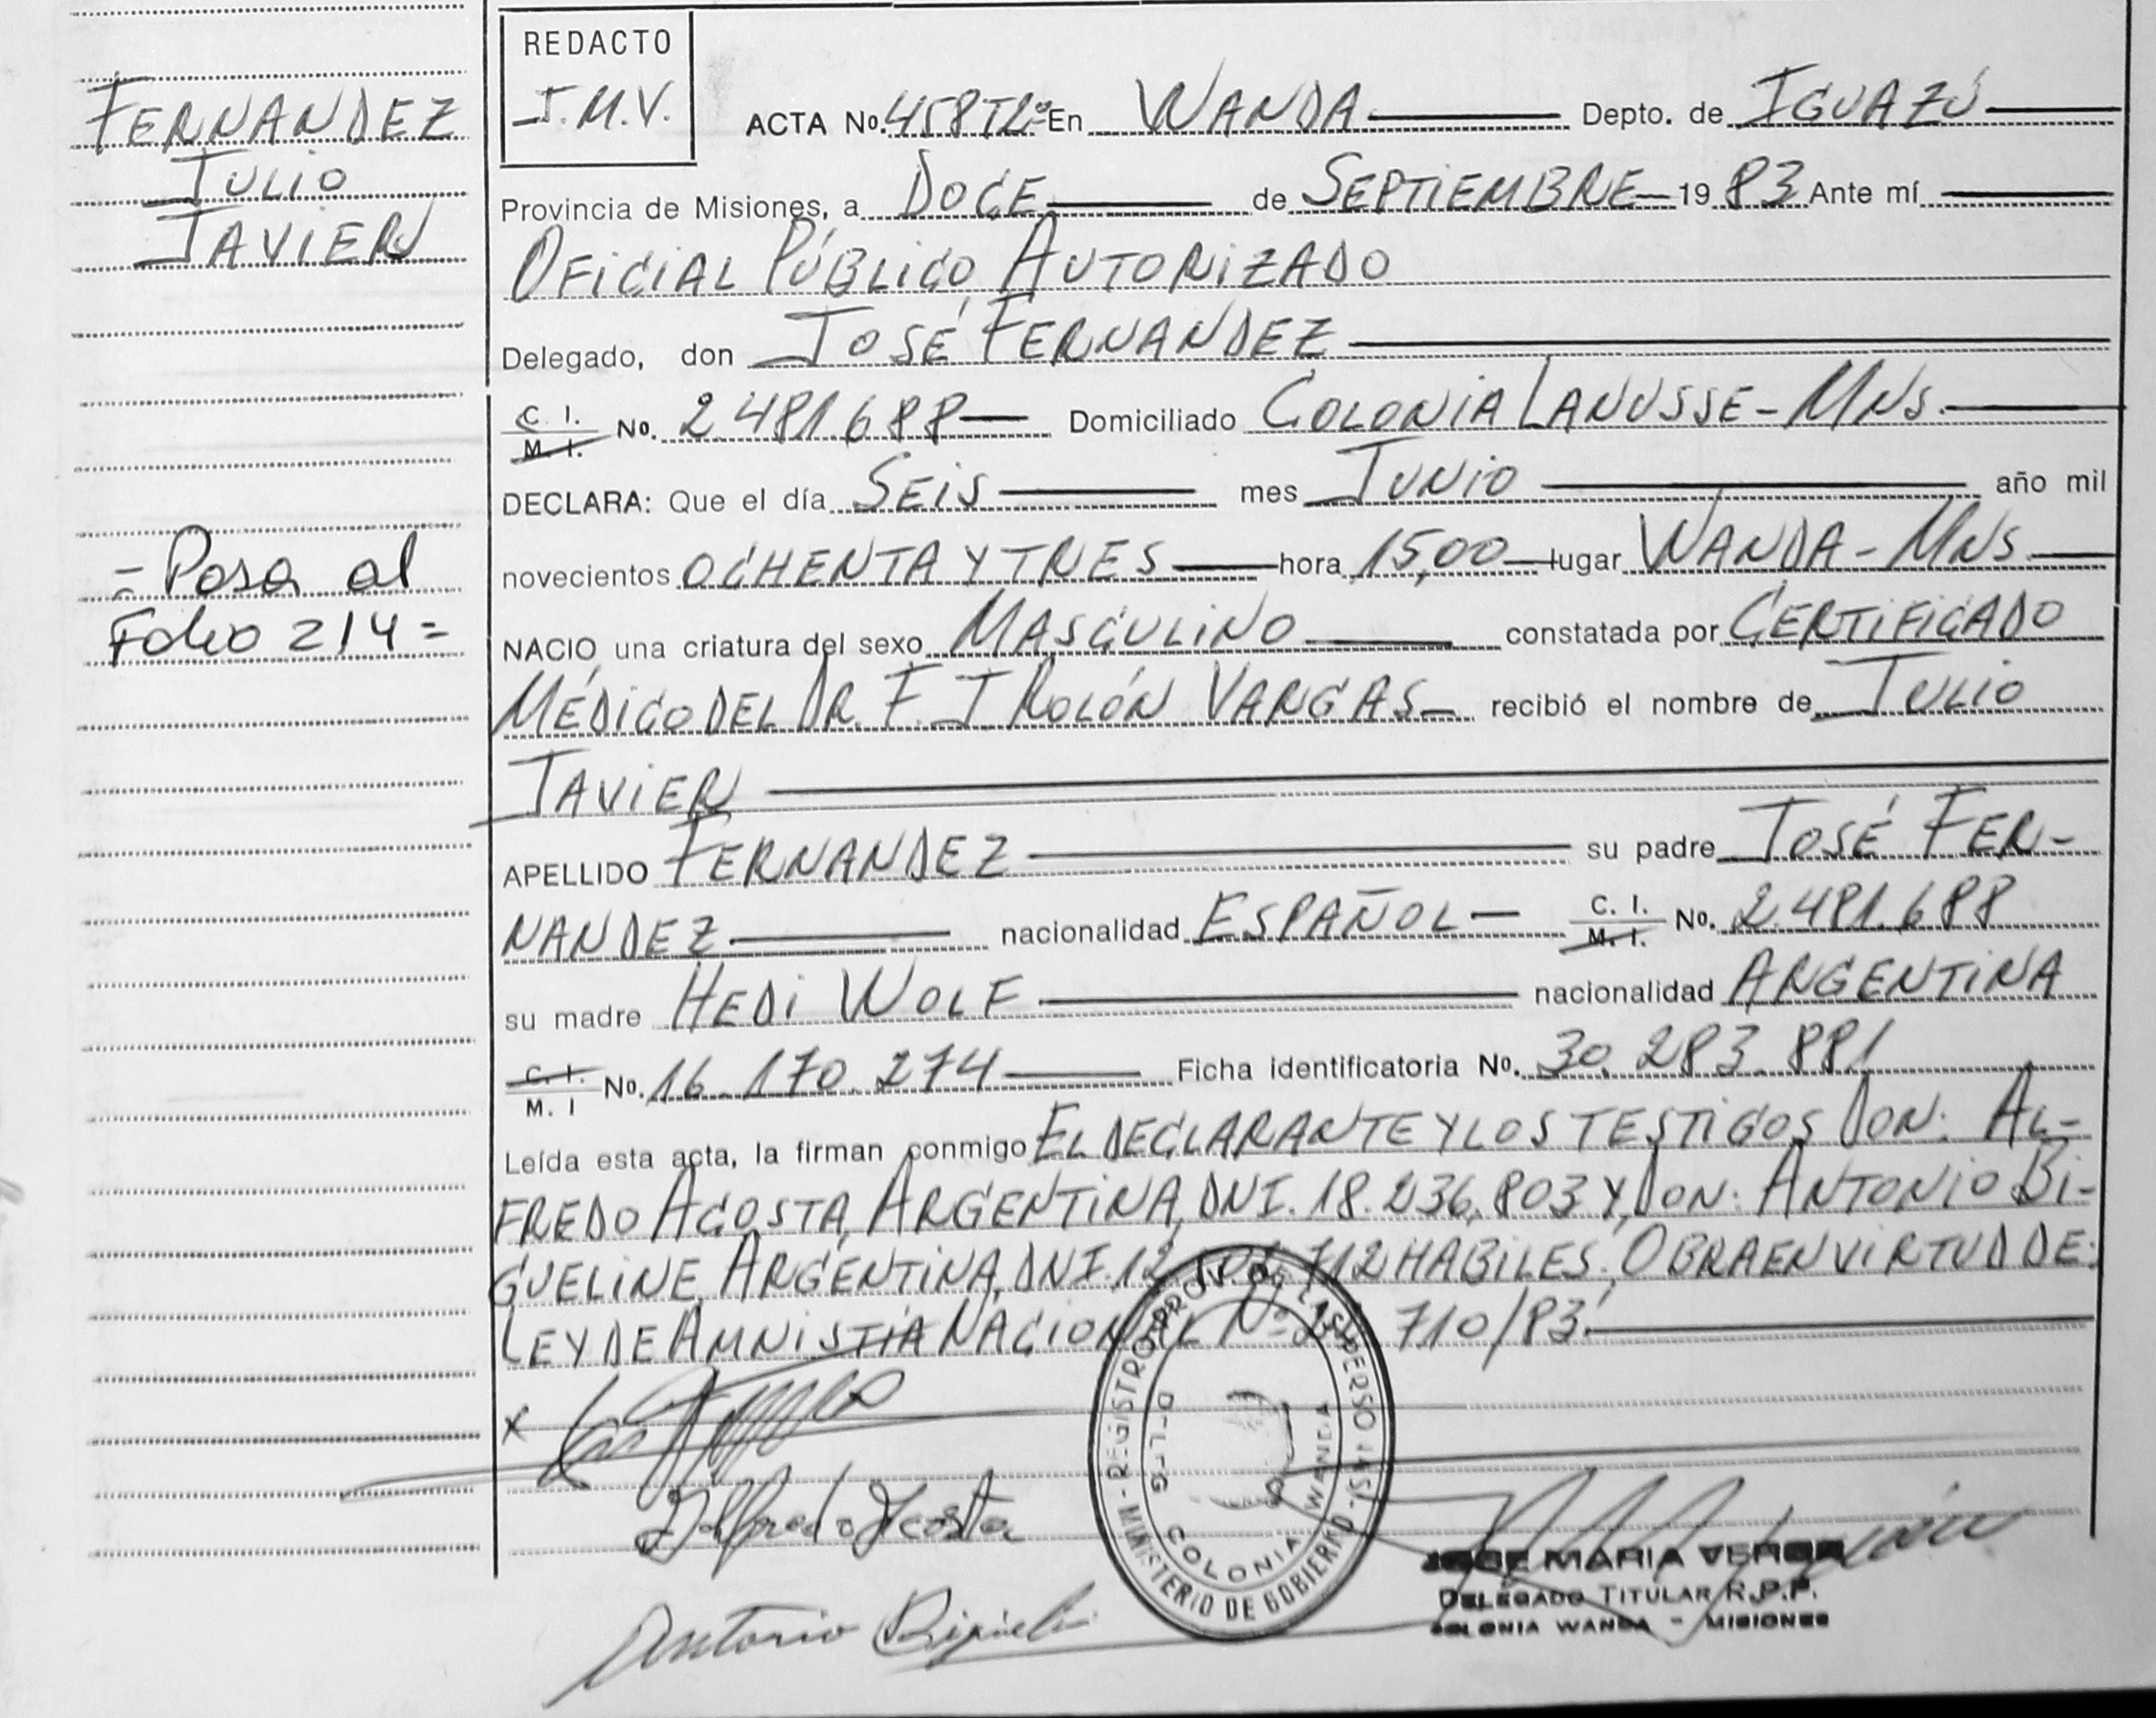 FERNANDEZ
JULIO
JAVIER
= Pasa al
Folio 214 =
REDACTO
J.M.V.
ACTA No. 458 En WANDA Depto. de IGUAZÚ
Provincia de Misiones, a DOCE de SEPTIEMBRE 1983 Ante mí
OFICIAL PÚBLICO AUTORIZADO
Delegado, don JOSÉ FERNANDEZ
C. I. M. I. No. 2.481.688 Domiciliado COLONIA LANUSSE - MNS.
DECLARA: Que el día SEIS mes JUNIO año mil
novecientos OCHENTA Y TRES hora 15,00 lugar WANDA - MNS
NACIO una criatura del sexo MASCULINO constatada por CERTIFICADO
MÉDICO DEL DR. F. J ROLÓN VARGAS recibió el nombre de JULIO
JAVIER
APELLIDO FERNANDEZ su padre JOSÉ FER-
NANDEZ nacionalidad ESPAÑOL C. I. M. I. No. 2.481.688
su madre HEDI WOLF nacionalidad ARGENTINA
C. I. M. I No. 16.170.274 Ficha identificatoria No. 30.283.881
Leída esta acta, la firman conmigo EL DECLARANTE Y LOS TESTIGOS DON: AL-
FREDO ACOSTA, ARGENTINA, DNI. 18.236.803 Y DON: ANTONIO BI-
GUELINE, ARGENTINA, DNI. 12. 712 HABILES. OBRA EN VIRTUD DE:
LEY DE AMNISTIA NACIONAL Nº 710/83.
x
Alfredo Acosta
Antonio
MINISTERIO DE GOBIERNO - REGISTRO PROV. DE LAS PERSONAS
DELEG COLONIA WANDA
JOSE MARIA
DELEGADO TITULAR R.P.P.
COLONIA WANDA - MISIONES